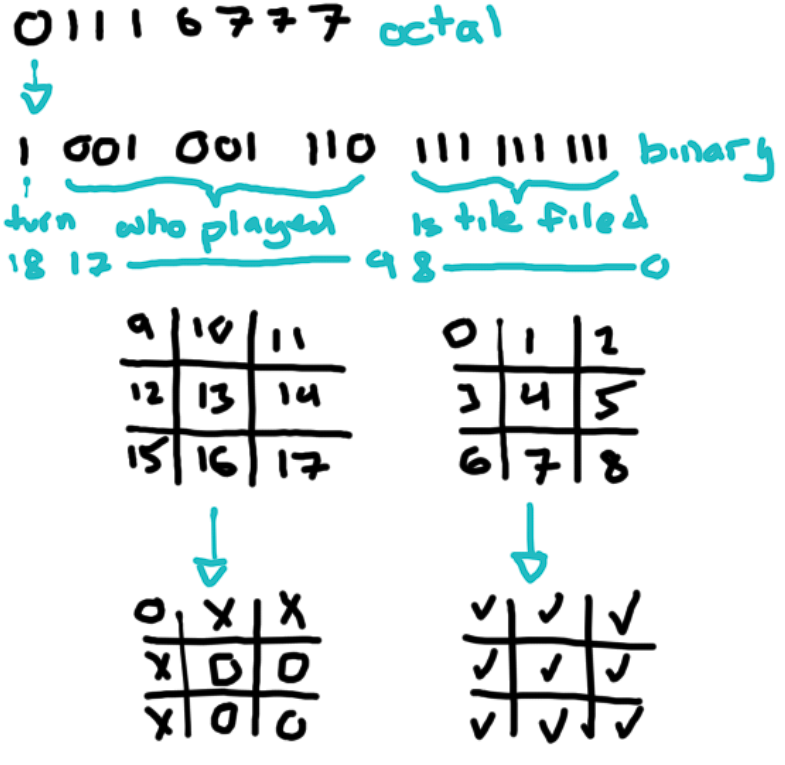 01116777 octal
1 001 001 110 111 111 111 binary
turn who played is tile filed
18 17 9 8 0
9 10 11 0 1 2
12 13 14 3 4 5
15 16 17 6 7 8
O X X ✓ ✓ ✓
X O O ✓ ✓ ✓
X O O ✓ ✓ ✓